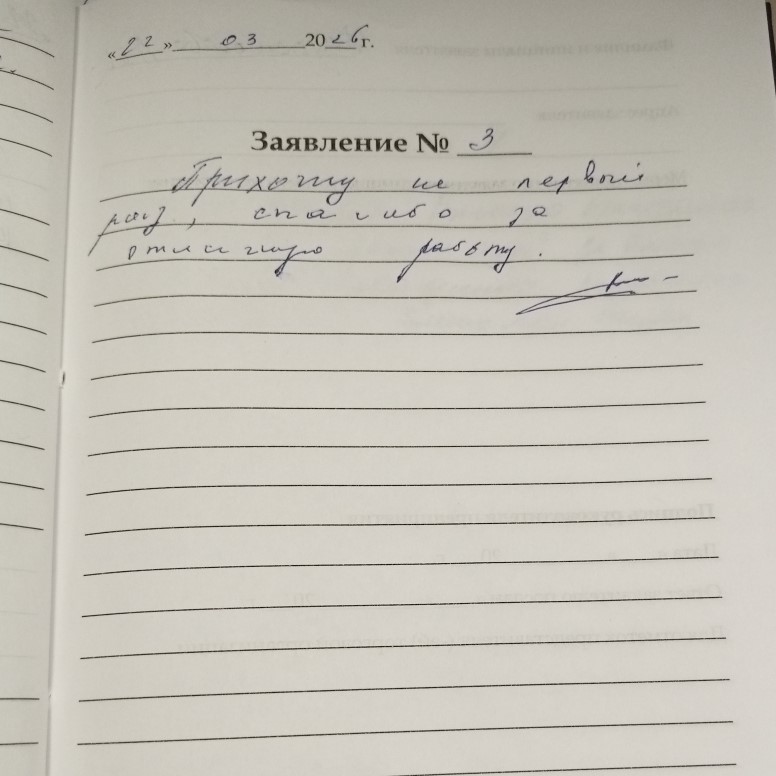 «22» 03 2026г.
Заявление № 3
Прихожу не первый
раз, спасибо за
отличную работу.